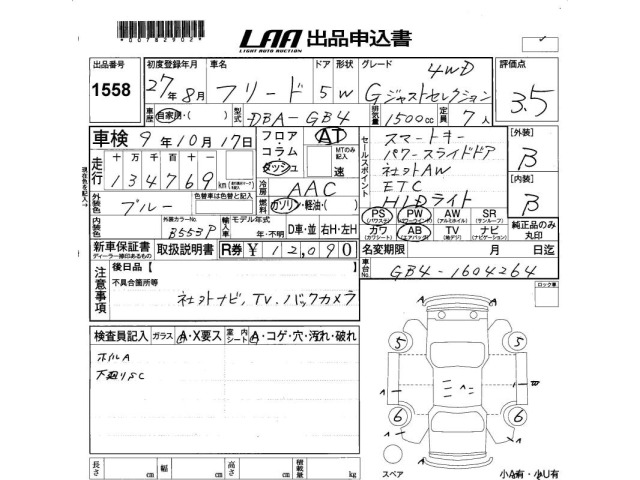 *00782902*
LAA 出品申込書
LIGHT AUTO AUCTION
出品番号 初度登録年月 車名 ドア 形状 グレード 評価点
1558 27年8月 フリード 5 W 4WD Gジャストセレクション 3.5
車歴 自家用・( ) 型式 DBA-GB4 排気量 1500cc 定員 7人
車検 9年10月17日 フロア・コラム ダッシュ AT MTのみ記入 速
セールスポイント スマートキー
パワースライドドア
社外AW
ETC
HIDライト
[外装] B
[内装] B
走行 十万千百十一
134769 km
冷房 AAC
燃料 ガソリン・軽油・( )
外装色 ブルー 色替車は色替と記入
内装色 外装カラーNo. B553P 輸入車 モデル年式 年・不明 D車・並 右H・左H
PS PW AW SR
(パワステ) (パワーウインド) (アルミホイル) (サンルーフ)
カワ AB TV ナビ
(カワシート) (エアバッグ) (地デジ) (ナビゲーション)
純正品のみ丸印
新車保証書 取扱説明書 R券 ¥12,090
ディーラー捺印あるもの
名変期限 月 日迄
車台No. GB4-1604264
注意事項 後日品【 】
不具合箇所等
社外ナビ,TV.バックカメラ
現在色を記入→
ロック車
検査員記入 ガラス A・X要ス 室内シート A・コゲ・穴・汚れ・破れ
ホイルA
下廻りSC
A A
5 5
A
W
6 6
A
スペア 小A有・小U有
長さ cm 幅 cm 高さ cm 積載量 kg